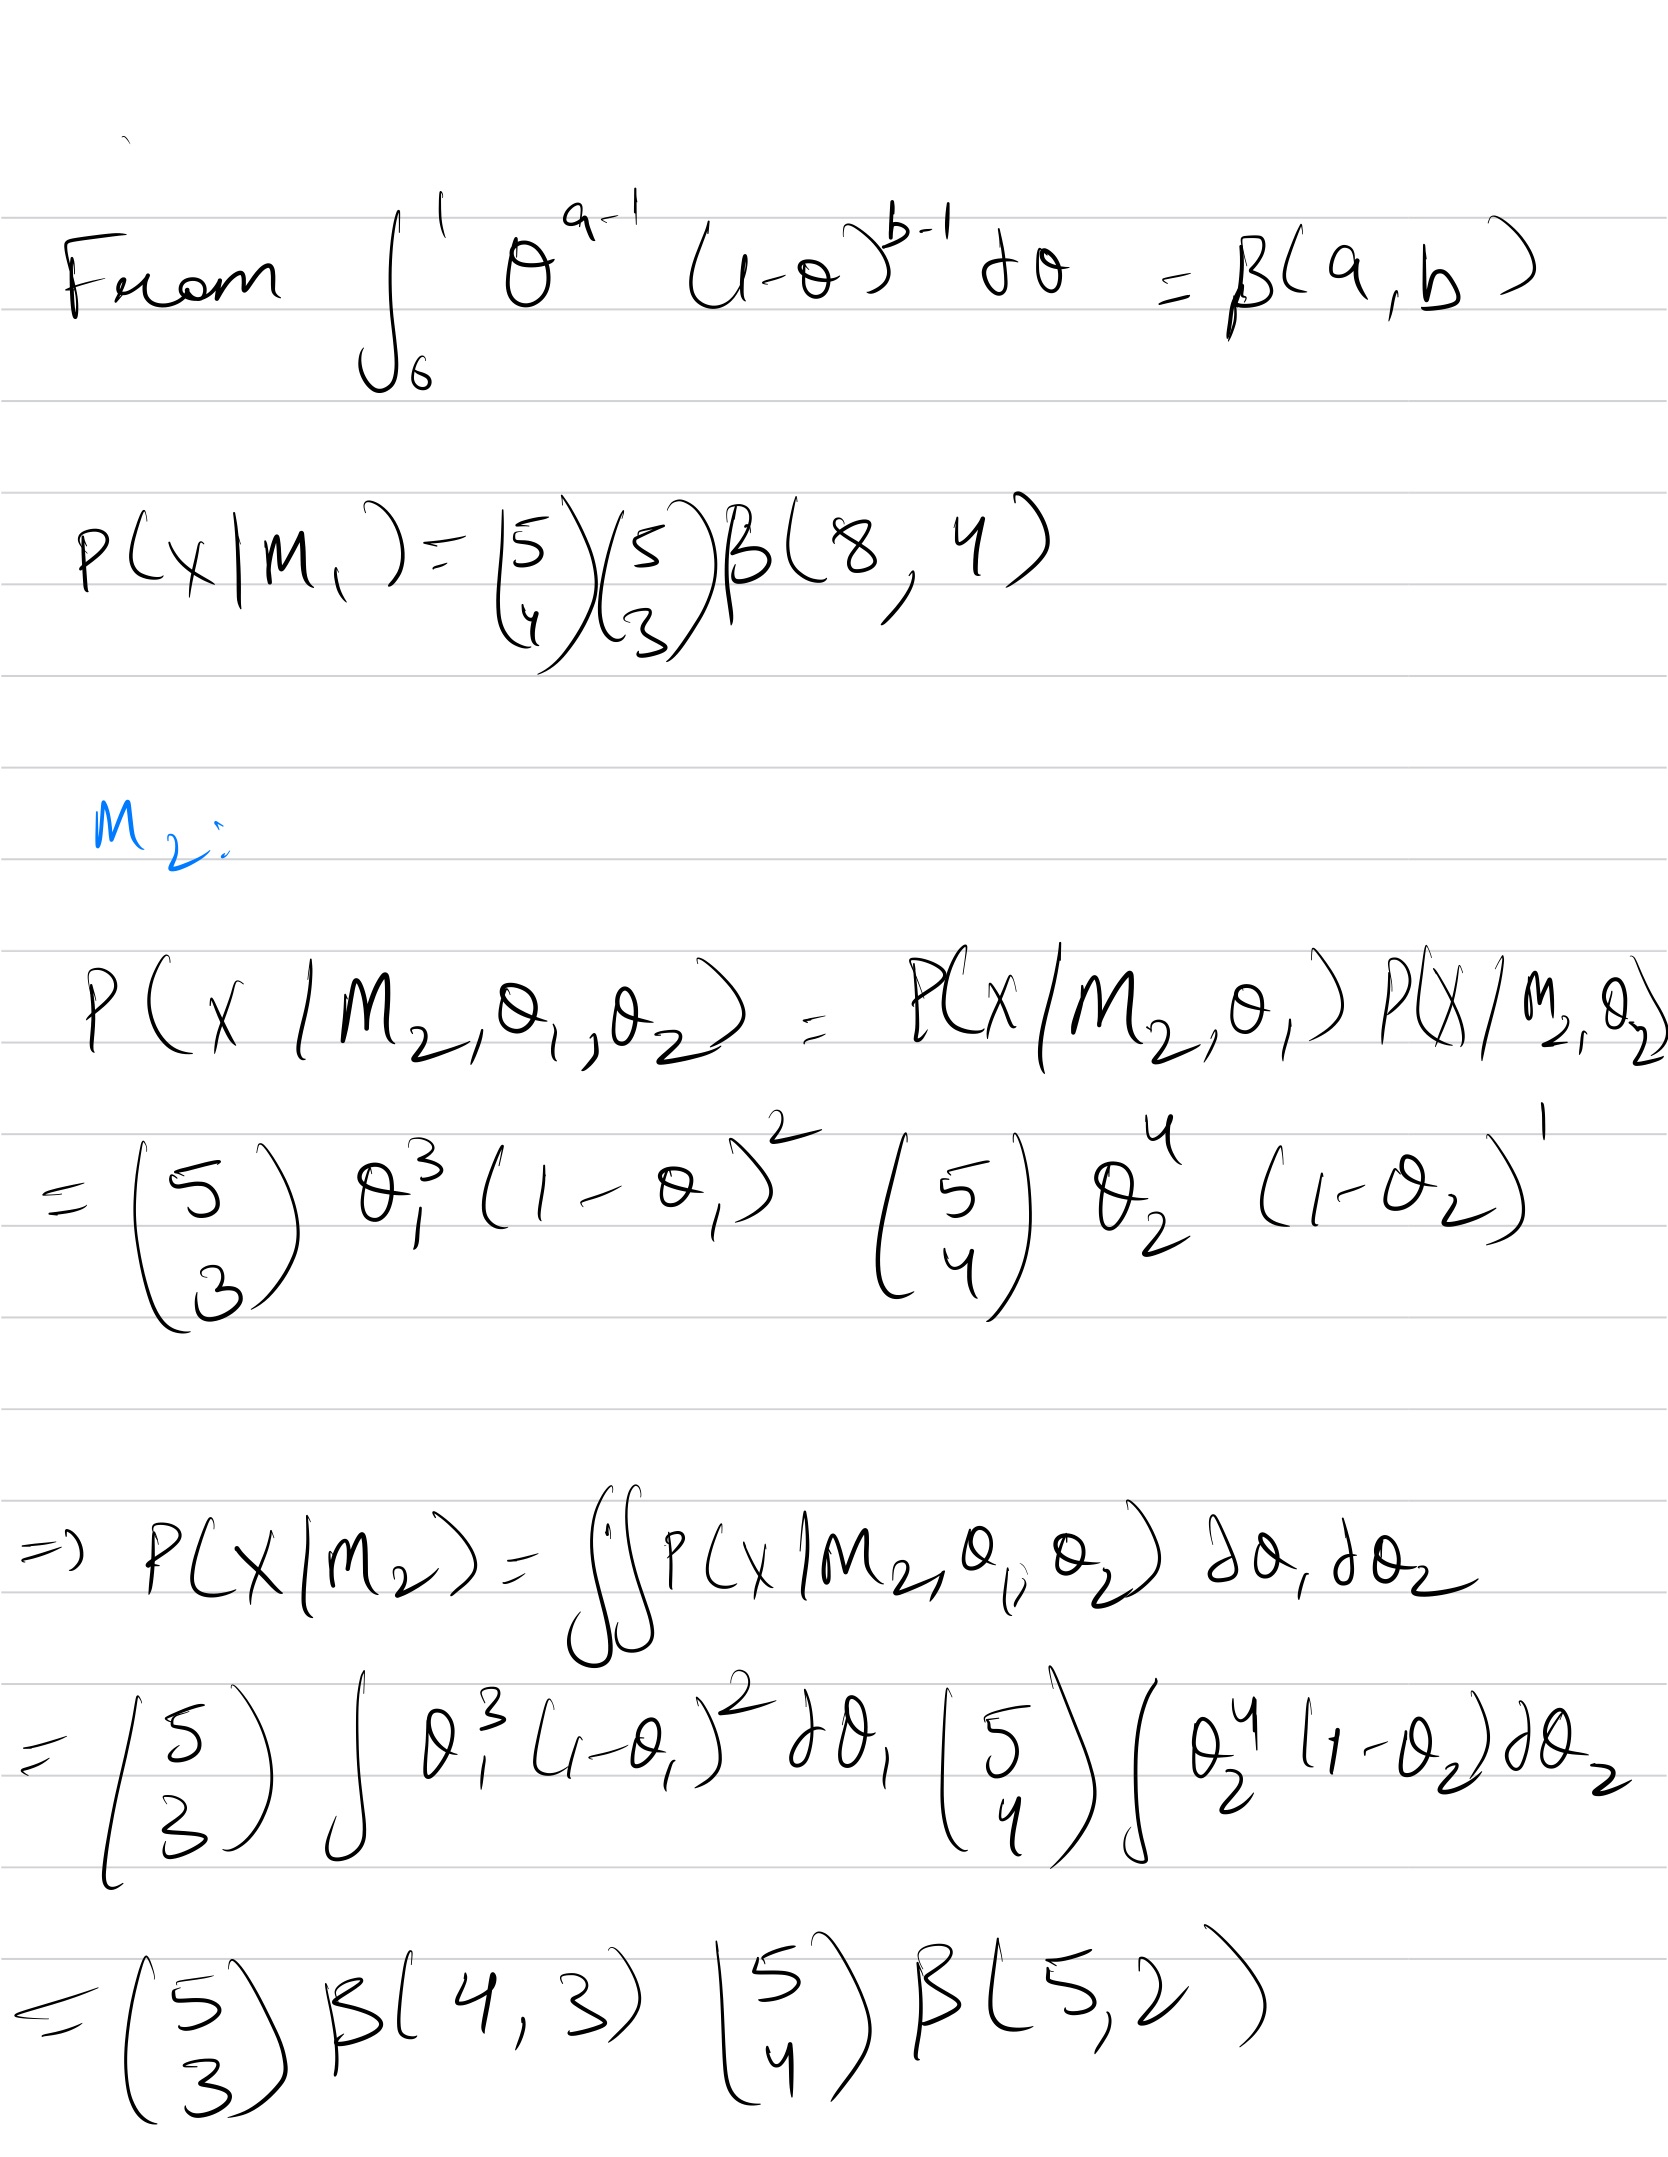 From ∫₀¹ θ^{a-1} (1-θ)^{b-1} dθ = β(a,b)
P(X|M₁) = (5 4)(5 3) β(8,4)
M₂:
P(X|M₂,θ₁,θ₂) = P(X|M₂,θ₁) P(X|M₂,θ₂)
= (5 3) θ₁³ (1-θ₁)² (5 4) θ₂⁴ (1-θ₂)¹
⇒ P(X|M₂) = ∬ P(X|M₂,θ₁,θ₂) dθ₁ dθ₂
= (5 3) ∫ θ₁³ (1-θ₁)² dθ₁ (5 4) ∫ θ₂⁴ (1-θ₂) dθ₂
= (5 3) β(4,3) (5 4) β(5,2)